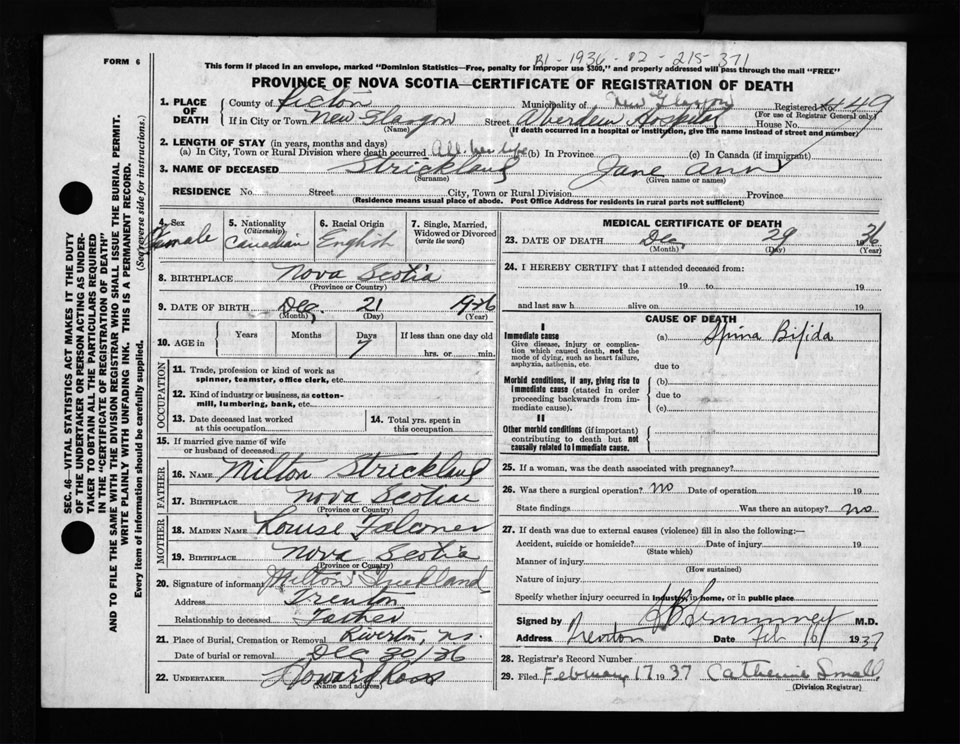 FORM 6
B1-1936-02-215-371
This form if placed in an envelope, marked "Dominion Statistics—Free, penalty for improper use $300," and properly addressed will pass through the mail "FREE"
PROVINCE OF NOVA SCOTIA—CERTIFICATE OF REGISTRATION OF DEATH
1. PLACE OF DEATH
County of Pictou Municipality of New Glasgow Registered No. 449
(For use of Registrar General only)
If in City or Town New Glasgow Street Aberdeen Hospital House No.
(Name) (If death occurred in a hospital or institution, give the name instead of street and number)
2. LENGTH OF STAY (in years, months and days)
(a) In City, Town or Rural Division where death occurred All her life (b) In Province (c) In Canada (if immigrant)
3. NAME OF DECEASED Strickland Jane Ann
(Surname) (Given name or names)
RESIDENCE No. Street City, Town or Rural Division Province
(Residence means usual place of abode. Post Office Address for residents in rural parts not sufficient)
4. Sex Female
5. Nationality (Citizenship) Canadian
6. Racial Origin English
7. Single, Married, Widowed or Divorced (write the word)
8. BIRTHPLACE Nova Scotia
(Province or Country)
9. DATE OF BIRTH Dec. 21 1936
(Month) (Day) (Year)
10. AGE in Years Months Days 7 If less than one day old hrs. or min.
OCCUPATION
11. Trade, profession or kind of work as spinner, teamster, office clerk, etc.
12. Kind of industry or business, as cotton-mill, lumbering, bank, etc.
13. Date deceased last worked at this occupation
14. Total yrs. spent in this occupation
15. If married give name of wife or husband of deceased
FATHER
16. NAME Milton Strickland
17. BIRTHPLACE Nova Scotia
(Province or Country)
MOTHER
18. MAIDEN NAME Louise Falconer
19. BIRTHPLACE Nova Scotia
(Province or Country)
20. Signature of informant Milton Strickland
Address Trenton
Relationship to deceased Father
21. Place of Burial, Cremation or Removal Riverton, N.S.
Date of burial or removal Dec 30/36
22. UNDERTAKER Howard Ross
(Name and address)
MEDICAL CERTIFICATE OF DEATH
23. DATE OF DEATH Dec 29 1936
(Month) (Day) (Year)
24. I HEREBY CERTIFY that I attended deceased from:
19 to 19
and last saw h alive on 19
CAUSE OF DEATH
I
Immediate cause
Give disease, injury or complication which caused death, not the mode of dying, such as heart failure, asphyxia, asthenia, etc.
(a) Spina Bifida
due to
Morbid conditions, if any, giving rise to immediate cause (stated in order proceeding backwards from immediate cause).
(b)
due to
(c)
II
Other morbid conditions (if important) contributing to death but not causally related to immediate cause.
25. If a woman, was the death associated with pregnancy?
26. Was there a surgical operation? no Date of operation 19
State findings Was there an autopsy? no
27. If death was due to external causes (violence) fill in also the following:—
Accident, suicide or homicide? Date of injury 19
(State which)
Manner of injury
(How sustained)
Nature of injury
Specify whether injury occurred in industry, in home, or in public place
Signed by M.D.
Address Trenton Date Feb 16 1937
28. Registrar's Record Number
29. Filed February 17 1937 Catherine Small
(Division Registrar)
SEC. 46—VITAL STATISTICS ACT MAKES IT THE DUTY
OF THE UNDERTAKER OR PERSON ACTING AS UNDER-
TAKER TO OBTAIN ALL THE PARTICULARS REQUIRED
IN THE "CERTIFICATE OF REGISTRATION OF DEATH"
AND TO FILE THE SAME WITH THE DIVISION REGISTRAR WHO SHALL ISSUE THE BURIAL PERMIT.
WRITE PLAINLY WITH UNFADING INK. THIS IS A PERMANENT RECORD.
Every item of information should be carefully supplied. (See reverse side for instructions.)